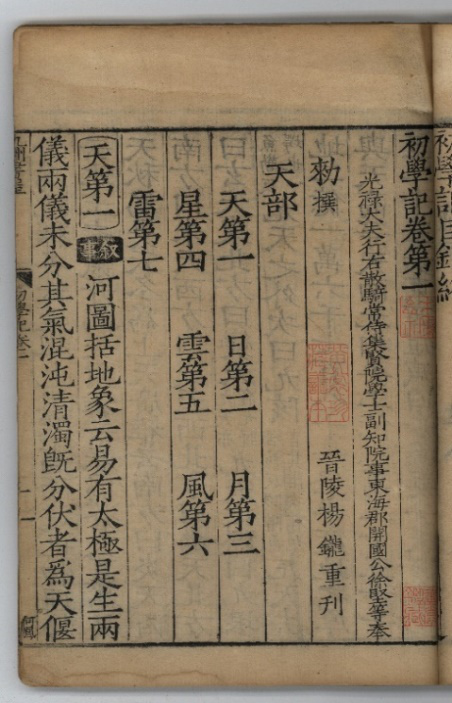 初學記卷第一
光祿大夫行右散騎常侍集賢院學士副知院事東海郡開國公徐堅等奉
勑撰 晉陵楊鑨重刋
天部
天第一 日第二 月第三
星第四 雲第五 風第六
雷第七
天第一 敘事 河圖括地象云易有太極是生兩
儀兩儀未分其氣混沌清濁既分伏者爲天偃
初學記卷一